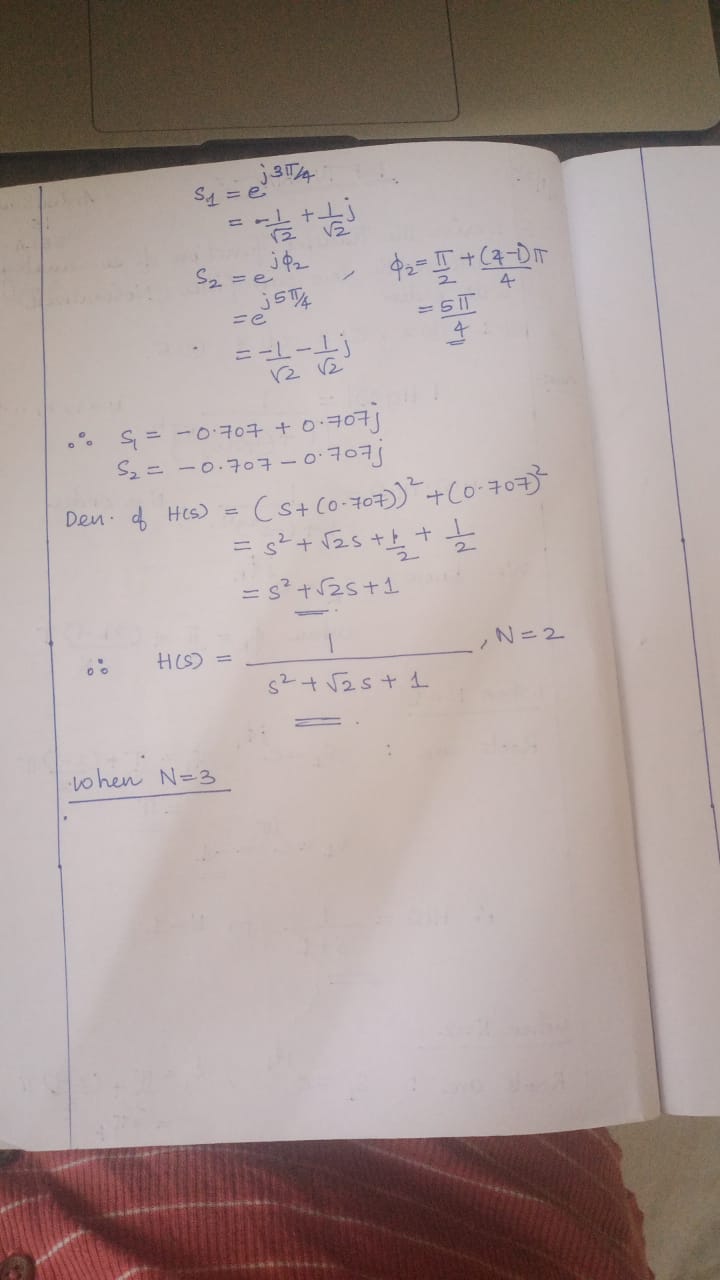 S₁ = e^(j3π/4)
= -1/√2 + 1/√2 j
S₂ = e^(jϕ₂) , ϕ₂ = π/2 + (4-1)π/4
= e^(j5π/4) = 5π/4
= -1/√2 - 1/√2 j
∴ S₁ = -0.707 + 0.707j
S₂ = -0.707 - 0.707j
Den. of H(s) = (S+(0.707))² + (0.707)²
= s² + √2s + 1/2 + 1/2
= s² + √2s + 1
∴ H(S) = 1/(s² + √2 s + 1) , N=2
when N=3